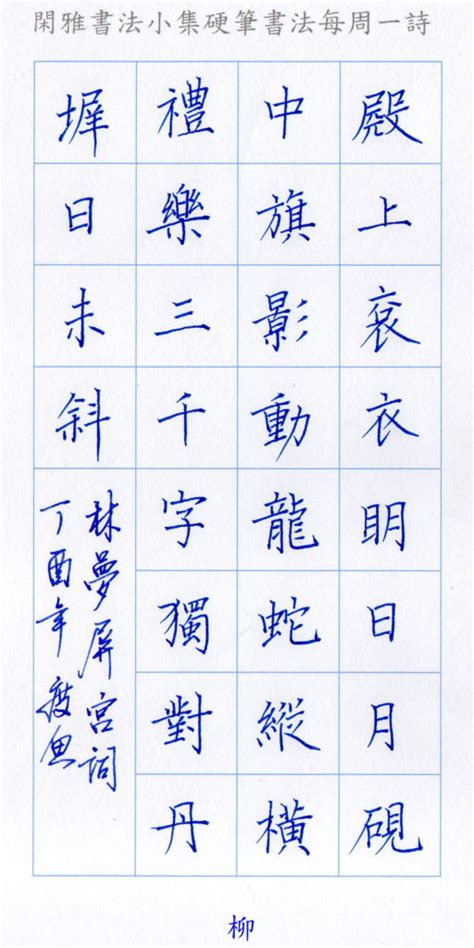 閑雅書法小集硬筆書法每周一詩
殿上衮衣明日月硯
中旗影動龍蛇縱橫
禮樂三千字獨對丹
墀日未斜
林夢屏宮詞
丁酉年疲魚
柳